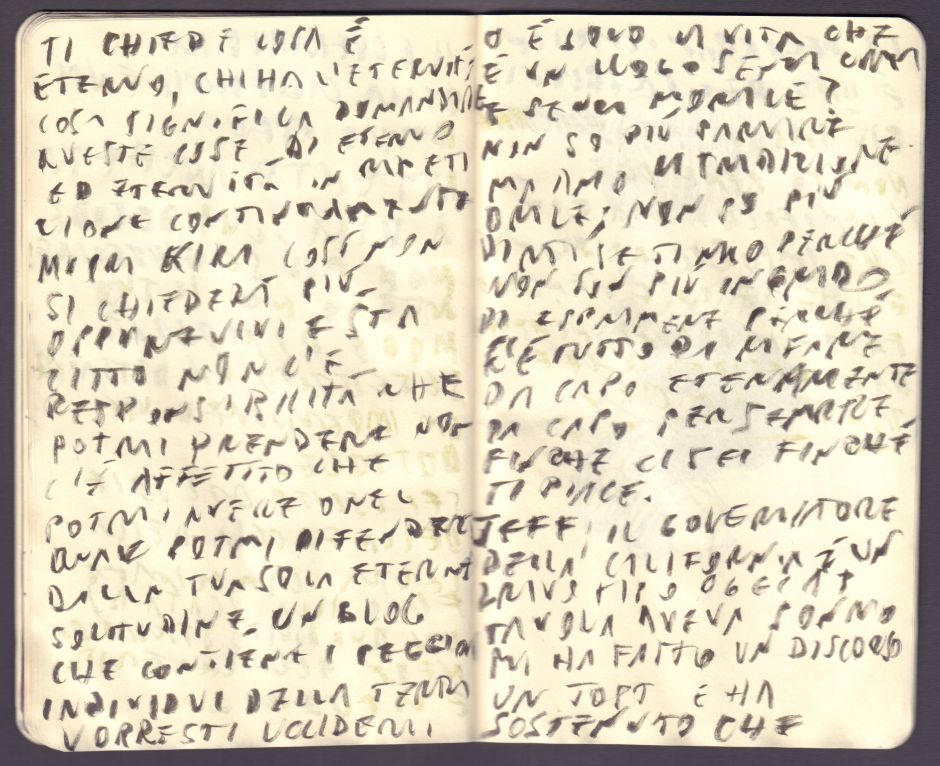 TI CHIEDI COSA È
ETERNO, CHI HA L'ETERNITÀ
COSA SIGNIFICA DOMANDARE
QUESTE COSE DI ETERNO
ED ETERNITÀ IN RIPETI
ZIONE CONTINUAMENTE
COSÌ NON
SI CHIEDERÀ PIÙ
OPPURE VIVI E STA
ZITTO NON C'È
RESPONSIBILITÀ CHE
POTRAI PRENDERE NON
C'È AFFETTO CHE
POTRAI AVERE O NEL
QUALE POTRAI DIFENDERTI
DALLA TUA SOLA ETERNA
SOLITUDINE. UN BLOG
CHE CONTIENE I PEGGIORI
INDIVIDUI DELLA TERRA
VORRESTI UCCIDERMI
O È SOLO LA VITA CHE
È UN LUOGO SENZA
E SENZA MORALE?
NON SO PIÙ PARLARE
NON SO PIÙ
DIRTI SE TI AMO PERCHÉ
NON SON PIÙ IN GRADO
DI ESPRIMERE PERCHÉ
È TUTTO DA RIFARE
DA CAPO ETERNAMENTE
DA CAPO PER SEMPRE
FINCHÉ CI SEI FINCHÉ
TI PIACE.
JEFF IL GOVERNATORE
DELLA CALIFORNIA È UN
TIPO OGGI A
TAVOLA AVEVA SONNO
MI HA FATTO UN DISCORSO
UN TOPT E HA
SOSTENUTO CHE